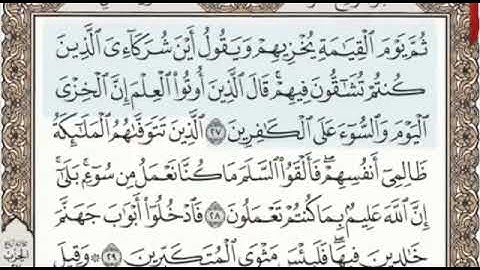 ثُمَّ يَوْمَ ٱلْقِيَٰمَةِ يُخْزِيهِمْ وَيَقُولُ أَيْنَ شُرَكَآءِىَ ٱلَّذِينَ
كُنتُمْ تُشَٰٓقُّونَ فِيهِمْ ۚ قَالَ ٱلَّذِينَ أُوتُوا۟ ٱلْعِلْمَ إِنَّ ٱلْخِزْىَ
ٱلْيَوْمَ وَٱلسُّوٓءَ عَلَى ٱلْكَٰفِرِينَ ٢٧ ٱلَّذِينَ تَتَوَفَّىٰهُمُ ٱلْمَلَٰٓئِكَةُ
ظَالِمِىٓ أَنفُسِهِمْ ۖ فَأَلْقَوُا۟ ٱلسَّلَمَ مَا كُنَّا نَعْمَلُ مِن سُوٓءٍۭ ۚ بَلَىٰٓ
إِنَّ ٱللَّهَ عَلِيمٌۢ بِمَا كُنتُمْ تَعْمَلُونَ ٢٨ فَٱدْخُلُوٓا۟ أَبْوَٰبَ جَهَنَّمَ
خَٰلِدِينَ فِيهَا ۖ فَلَبِئْسَ مَثْوَى ٱلْمُتَكَبِّرِينَ ٢٩ ۞ وَقِيلَ